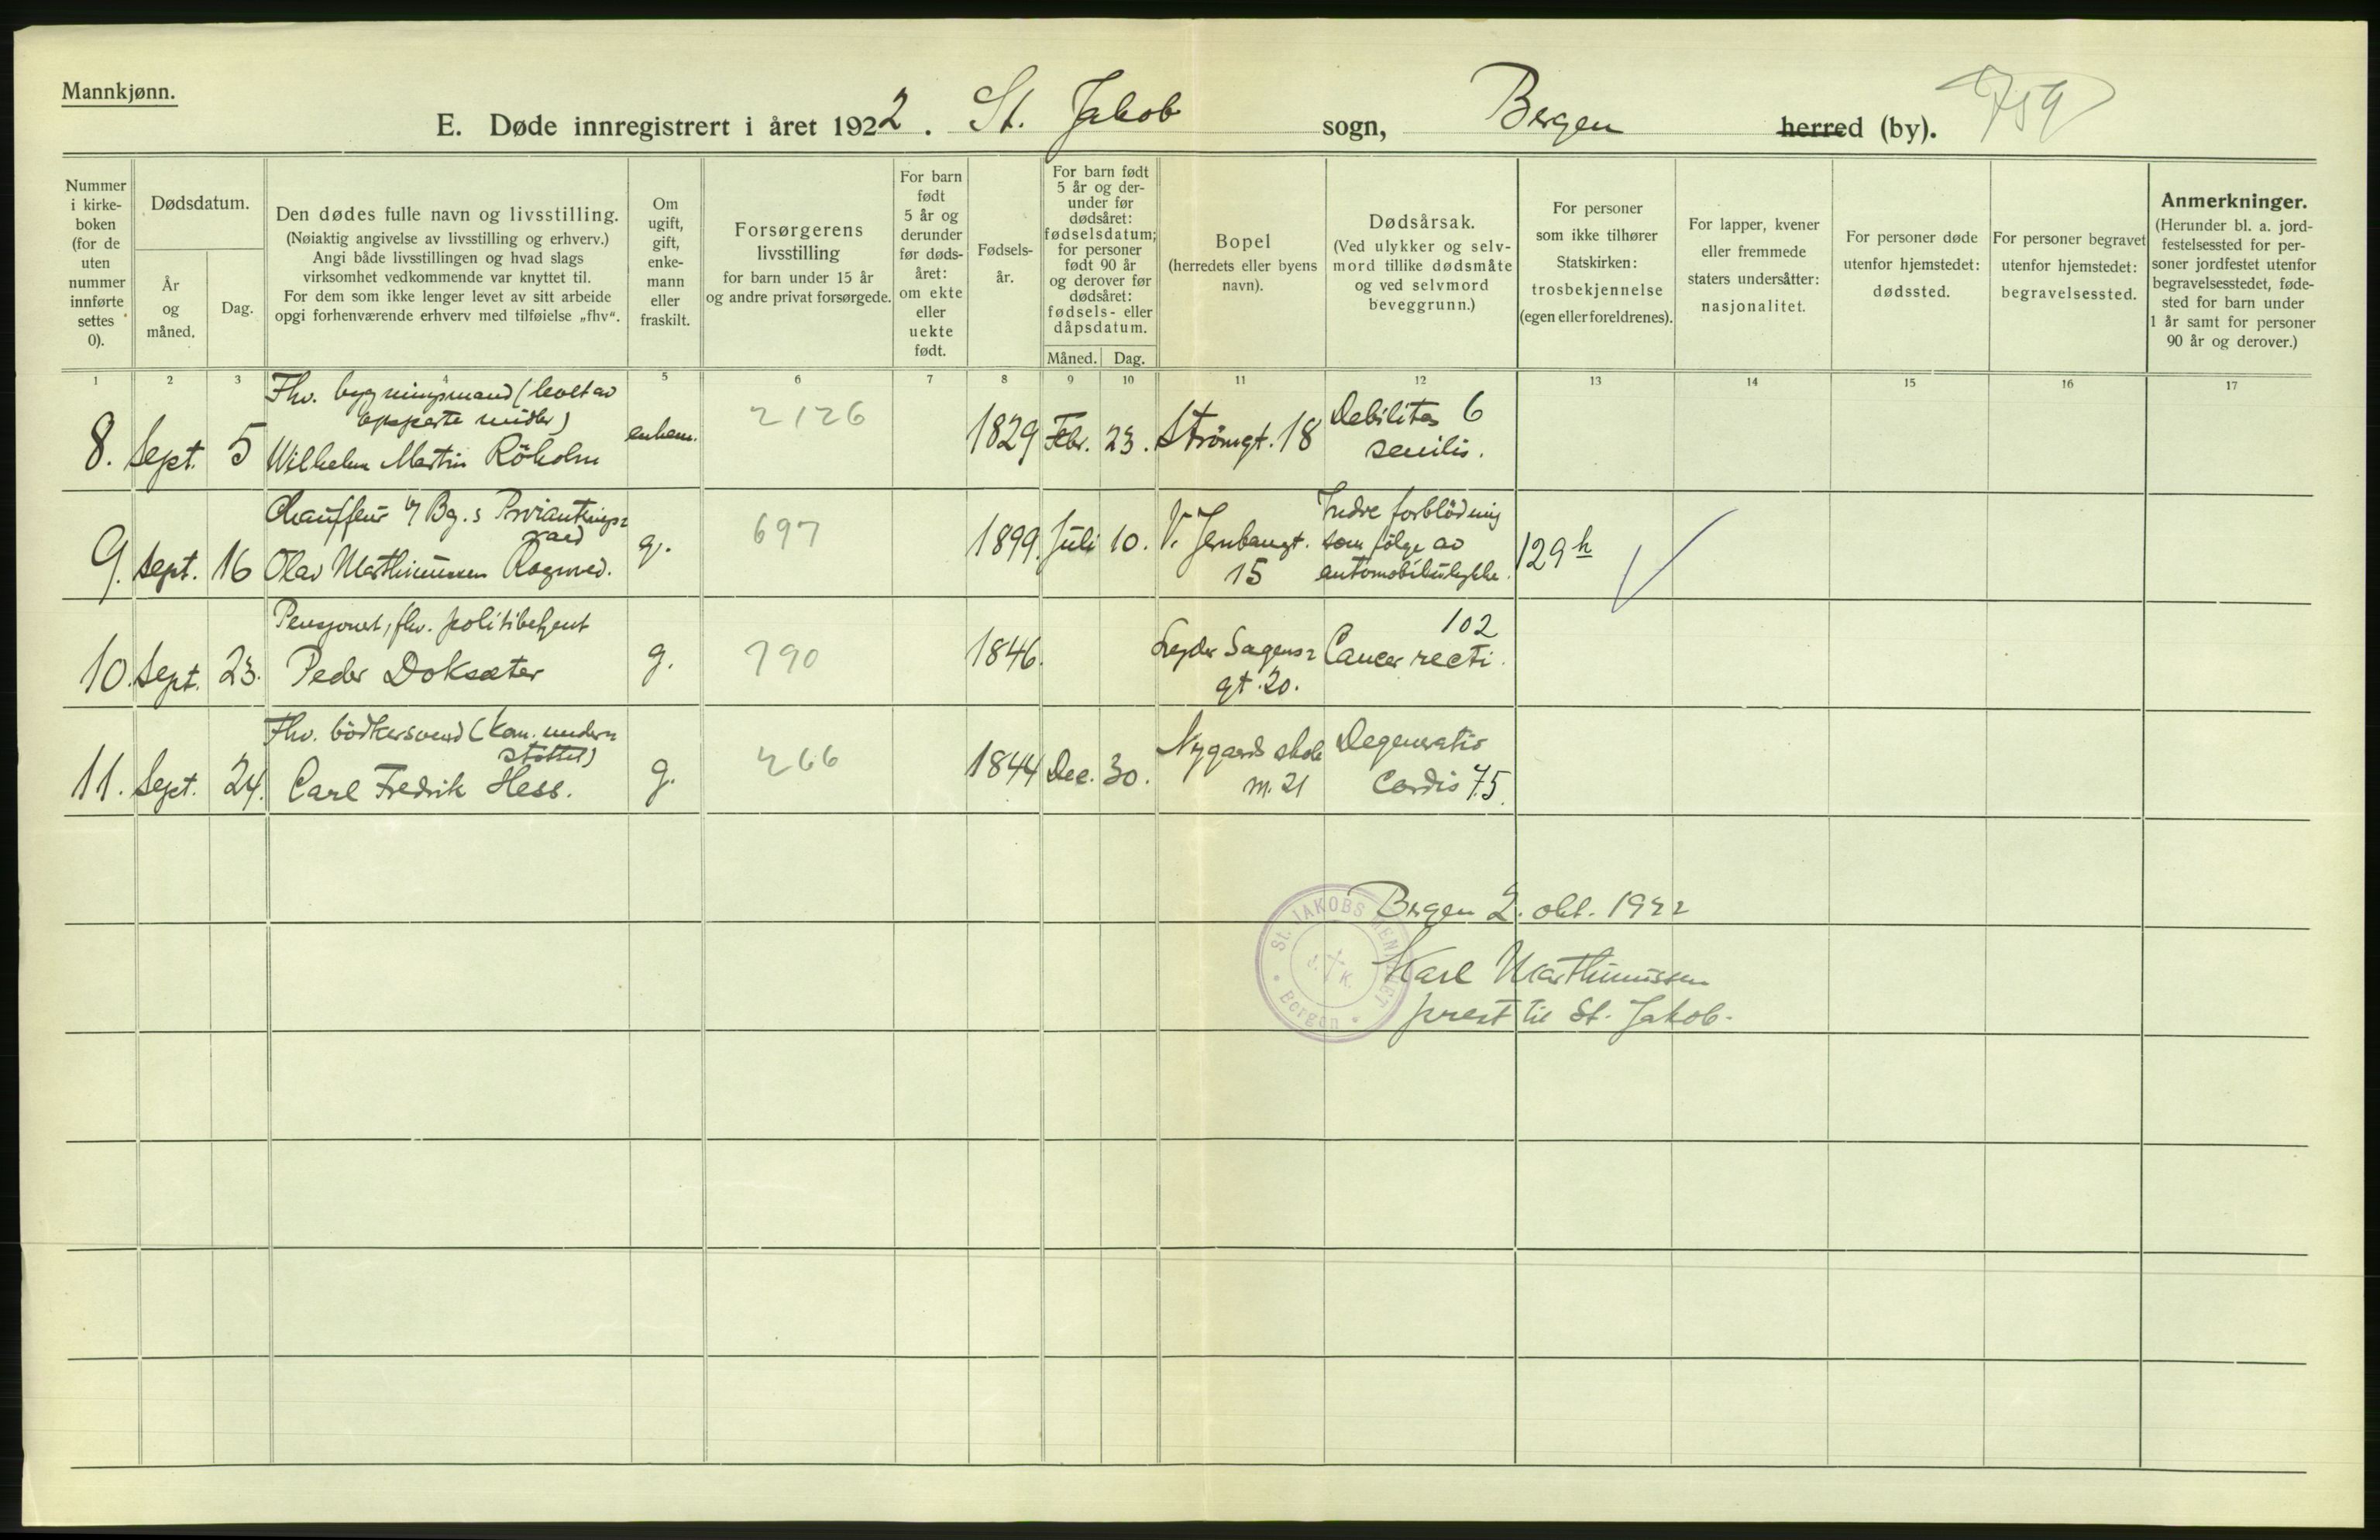 Mannkjønn.
E. Døde innregistrert i året 1922. St. Jakob sogn, Bergen herred (by). 759
Nummer i kirke-boken (for de uten nummer innførte settes 0).
Dødsdatum.
År og måned.
Dag.
Den dødes fulle navn og livsstilling.
(Nøiaktig angivelse av livsstilling og erhverv.)
Angi både livsstillingen og hvad slags
virksomhet vedkommende var knyttet til.
For dem som ikke lenger levet av sitt arbeide
opgi forhenværende erhverv med tilføielse „fhv“.
Om ugift, gift, enke-mann eller fraskilt.
Forsørgerens
livsstilling
for barn under 15 år
og andre privat forsørgede.
For barn født 5 år og derunder før døds-året: om ekte eller uekte født.
Fødsels-år.
For barn født 5 år og der-under før dødsåret: fødselsdatum; for personer født 90 år og derover før dødsåret: fødsels- eller dåpsdatum.
Måned. Dag.
Bopel
(herredets eller byens
navn).
Dødsårsak.
(Ved ulykker og selv-
mord tillike dødsmåte
og ved selvmord
beveggrunn.)
For personer
som ikke tilhører
Statskirken:
trosbekjennelse
(egen eller foreldrenes).
For lapper, kvener
eller fremmede
staters undersåtter:
nasjonalitet.
For personer døde
utenfor hjemstedet:
dødssted.
For personer begravet
utenfor hjemstedet:
begravelsessted.
Anmerkninger.
(Herunder bl. a. jord-
festelsessted for per-
soner jordfestet utenfor
begravelsesstedet, føde-
sted for barn under
1 år samt for personer
90 år og derover.)
1 2 3 4 5 6 7 8 9 10 11 12 13 14 15 16 17
Fhv. bygningsmand (levet av
opsparte midler)
8. Sept. 5 Wilhelm Martin Röholm enkem. 2126 1829 Febr. 23. Strömgt. 18 Debilitas 6
senilis.
Chauffeur v/ Bg.s Provianterings
raad
9. Sept. 16 Olav Marthinussen g. 697 1899. Juli 10. V. Jernbanegt. 15
Indre forblödning
som følge av
automobilulykke. 129 h
Pensjonert, fhv. politibetjent
10. Sept. 23. Peder Doksæter g. 790 1846. Lyder Sagens
gt. 20. 102
Cancer recti.
Fhv. bödkersvend (kom. under
støttet)
11. Sept. 24. Carl Fredrik Hess. g. 266 1844 Dec. 30. Nygaards skole
m. 21 Degeneratio
Cordis 75.
Bergen 2. okt. 1922
Karl Marthinussen
prest til St. Jakob.
St. JAKOBS MENIGHET
J. K.
Bergen